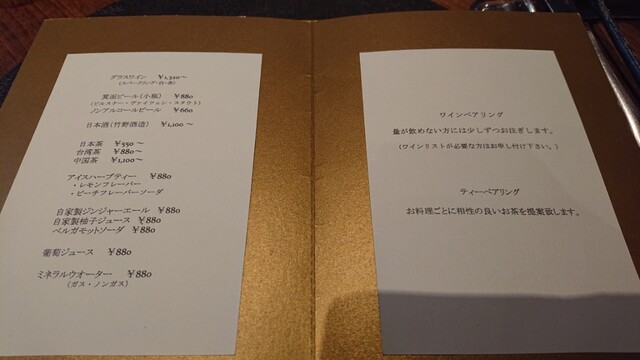 グラスワイン ¥1,320～
(スパークリング・白・赤)
箕面ビール(小瓶) ¥880
(ピルスナー・ヴァイツェン・スタウト)
ノンアルコールビール ¥660
日本酒(竹野酒造) ¥1,100～
日本茶 ¥550～
台湾茶 ¥880～
中国茶 ¥1,100～
アイスハーブティー ¥880
・レモンフレーバー
・ピーチフレーバーソーダ
自家製ジンジャーエール ¥880
自家製柚子ジュース ¥880
ベルガモットソーダ ¥880
葡萄ジュース ¥880
ミネラルウオーター ¥880
(ガス・ノンガス)
ワインペアリング
量が飲めない方には少しずつお注ぎします。
(ワインリストが必要な方はお申し付け下さい。)
ティーペアリング
お料理ごとに相性の良いお茶を提案致します。